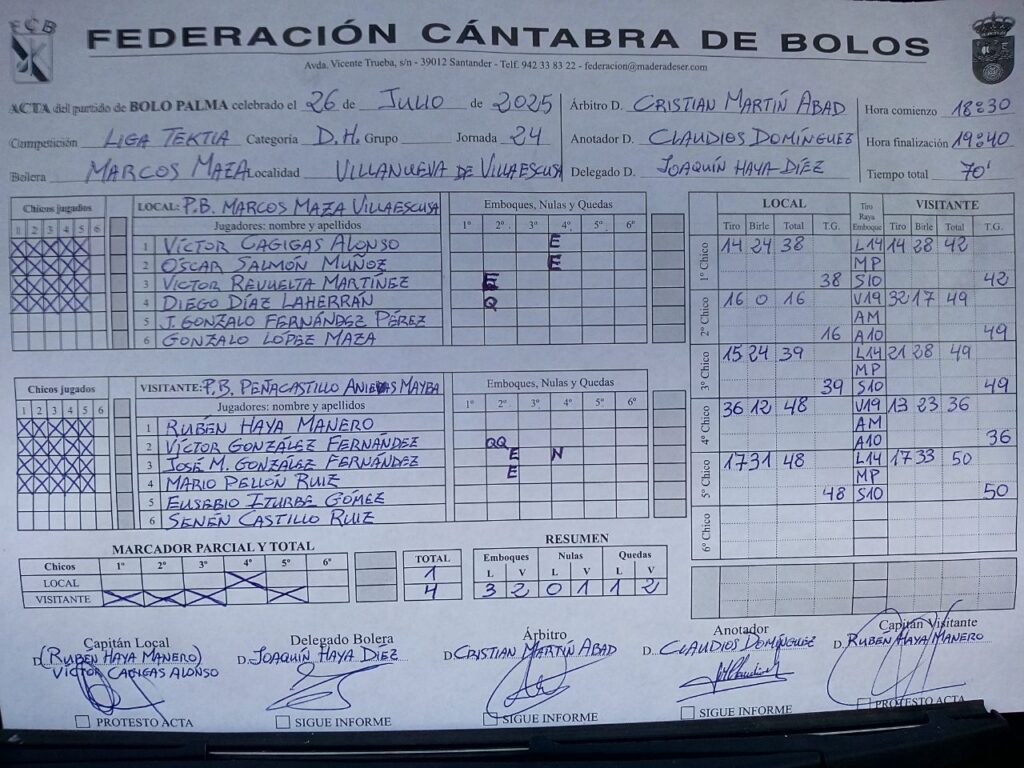 FCB
FEDERACIÓN CÁNTABRA DE BOLOS
Avda. Vicente Trueba, s/n - 39012 Santander - Telf. 942 33 83 22 - federacion@maderadeser.com
ACTA del partido de BOLO PALMA celebrado el 26 de JULIO de 2025
Competición LIGA TEKTIA Categoría D.H. Grupo Jornada 24
Bolera MARCOS MAZA Localidad VILLANUEVA DE VILLAESCUSA
Árbitro D. CRISTIAN MARTÍN ABAD
Anotador D. CLAUDIOS DOMÍNGUEZ
Delegado D. JOAQUÍN HAYA DÍEZ
Hora comienzo 18:30
Hora finalización 19:40
Tiempo total 70'
Chicos jugados LOCAL: P.B. MARCOS MAZA VILLAESCUSA Emboques, Nulas y Quedas
1 2 3 4 5 6 Jugadores: nombre y apellidos 1º 2º 3º 4º 5º 6º
1 VÍCTOR CAGIGAS ALONSO E
2 ÓSCAR SALMÓN MUÑOZ E
3 VÍCTOR REVUELTA MARTÍNEZ E
4 DIEGO DÍAZ LAHERRÁN Q
5 J. GONZALO FERNÁNDEZ PÉREZ
6 GONZALO LÓPEZ MAZA
Chicos jugados VISITANTE: P.B. PEÑACASTILLO ANIEVAS MAYBA Emboques, Nulas y Quedas
1 2 3 4 5 6 Jugadores: nombre y apellidos 1º 2º 3º 4º 5º 6º
1 RUBÉN HAYA MANERO
2 VÍCTOR GONZÁLEZ FERNÁNDEZ QQ
3 JOSÉ M. GONZÁLEZ FERNÁNDEZ E N
4 MARIO PELLÓN RUIZ E
5 EUSEBIO ITURBE GÓMEZ
6 SENÉN CASTILLO RUIZ
LOCAL Tiro Raya Emboque VISITANTE
Tiro Birle Total T.G. Tiro Birle Total T.G.
1º Chico 14 24 38 L14 14 28 42
MP
38 S10 42
2º Chico 16 0 16 V19 32 17 49
AM
16 A10 49
3º Chico 15 24 39 L14 21 28 49
MP
39 S10 49
4º Chico 36 12 48 V19 13 23 36
AM
A10 36
5º Chico 17 31 48 L14 17 33 50
MP
48 S10 50
6º Chico
MARCADOR PARCIAL Y TOTAL
Chicos 1º 2º 3º 4º 5º 6º TOTAL
LOCAL X 1
VISITANTE X X X X 4
RESUMEN
Emboques Nulas Quedas
L V L V L V
3 2 0 1 1 2
Capitán Local
D. (RUBEN HAYA MANERO)
VÍCTOR CAGIGAS ALONSO
PROTESTO ACTA
Delegado Bolera
D. JOAQUÍN HAYA DIEZ
SIGUE INFORME
Árbitro
D. CRISTIAN MARTÍN ABAD
SIGUE INFORME
Anotador
D. CLAUDIOS DOMÍNGUEZ
SIGUE INFORME
Capitán Visitante
D. RUBEN HAYA MANERO
PROTESTO ACTA